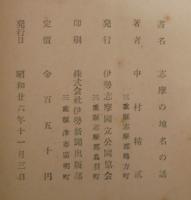 書名 志摩の地名の話
著者 中村精貮
三重県志摩郡鵜方町
発行 伊勢志摩国立公園協会
三重県志摩郡鵜方町
印刷 株式会社伊勢新聞出版部
三重県津市
定價 金百五十円
発行日 昭和廿六年十一月三日